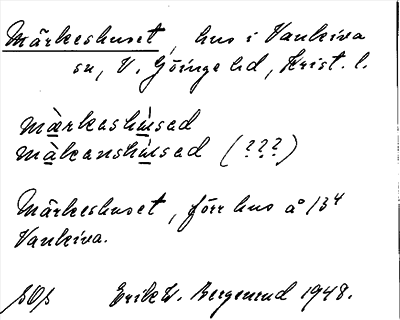 Märkeshuset, hus i Vankiva
sn, V. Göinge hd, Krist. l.
màrkashùsad
màkanshùsad (???)
Märkeshuset, förr hus å 13⁴
Vankiva.
sOs Erik W. Bergelund 1948.